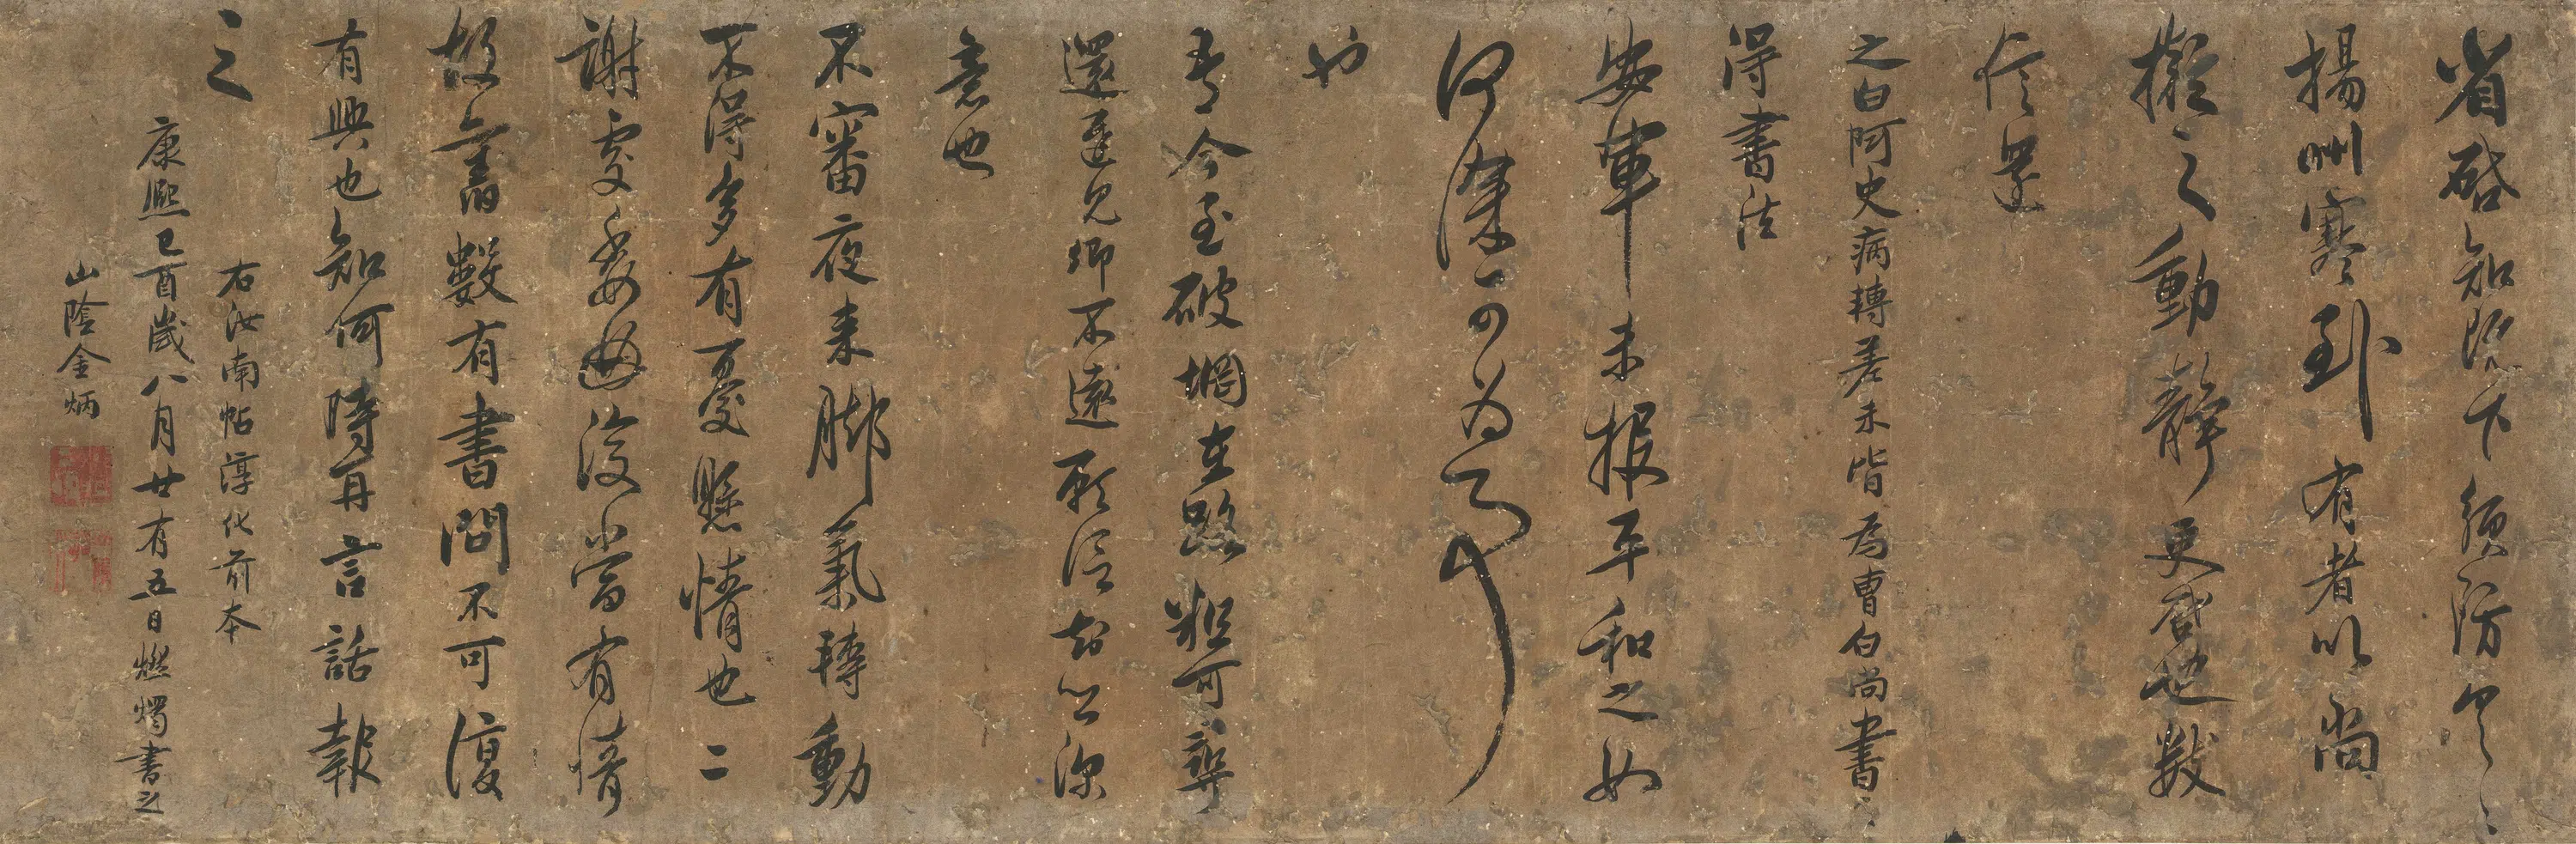 省啓知既下須防
揚州寒到有者以尚
擬之動靜更啓也數
信還
之白阿史病轉差未皆為曹白尚書
得書法
安車未報平和之如
何深可為
也
今至破堈在路粗可尋
還遲見卿不遠願深
意也
不審夜來腳氣轉動
不得多有憂懸情也二
謝妻女過後當有情
故舊數有書問不可復
有興也知何時再言話報
之
右汝南帖淳化前本
康熙己酉歲八月廿有五日燃燭書之
山陰金炳